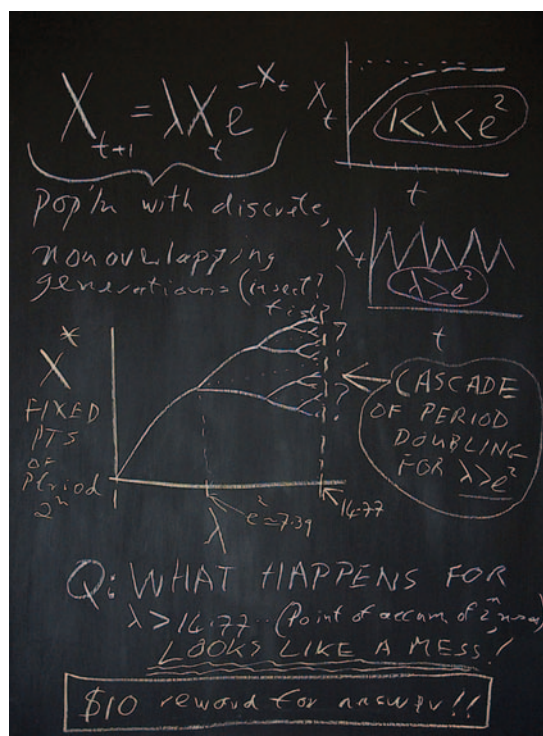 X_{t+1} = λX_t e^{-X_t}
X_t
1<λ<e²
t
pop'ln with discrete,
nonoverlapping
generations (insect?
fish?
X_t
λ>e²
t
X*
FIXED
PTS
OF
Period
2ⁿ
?
?
CASCADE
OF PERIOD
DOUBLING
FOR λ>e²
e²=7.39
14.77
λ
Q: WHAT HAPPENS FOR
λ>14.77.. (Point of accum of 2ⁿ,
LOOKS LIKE A MESS!
$10 reward for answer!!